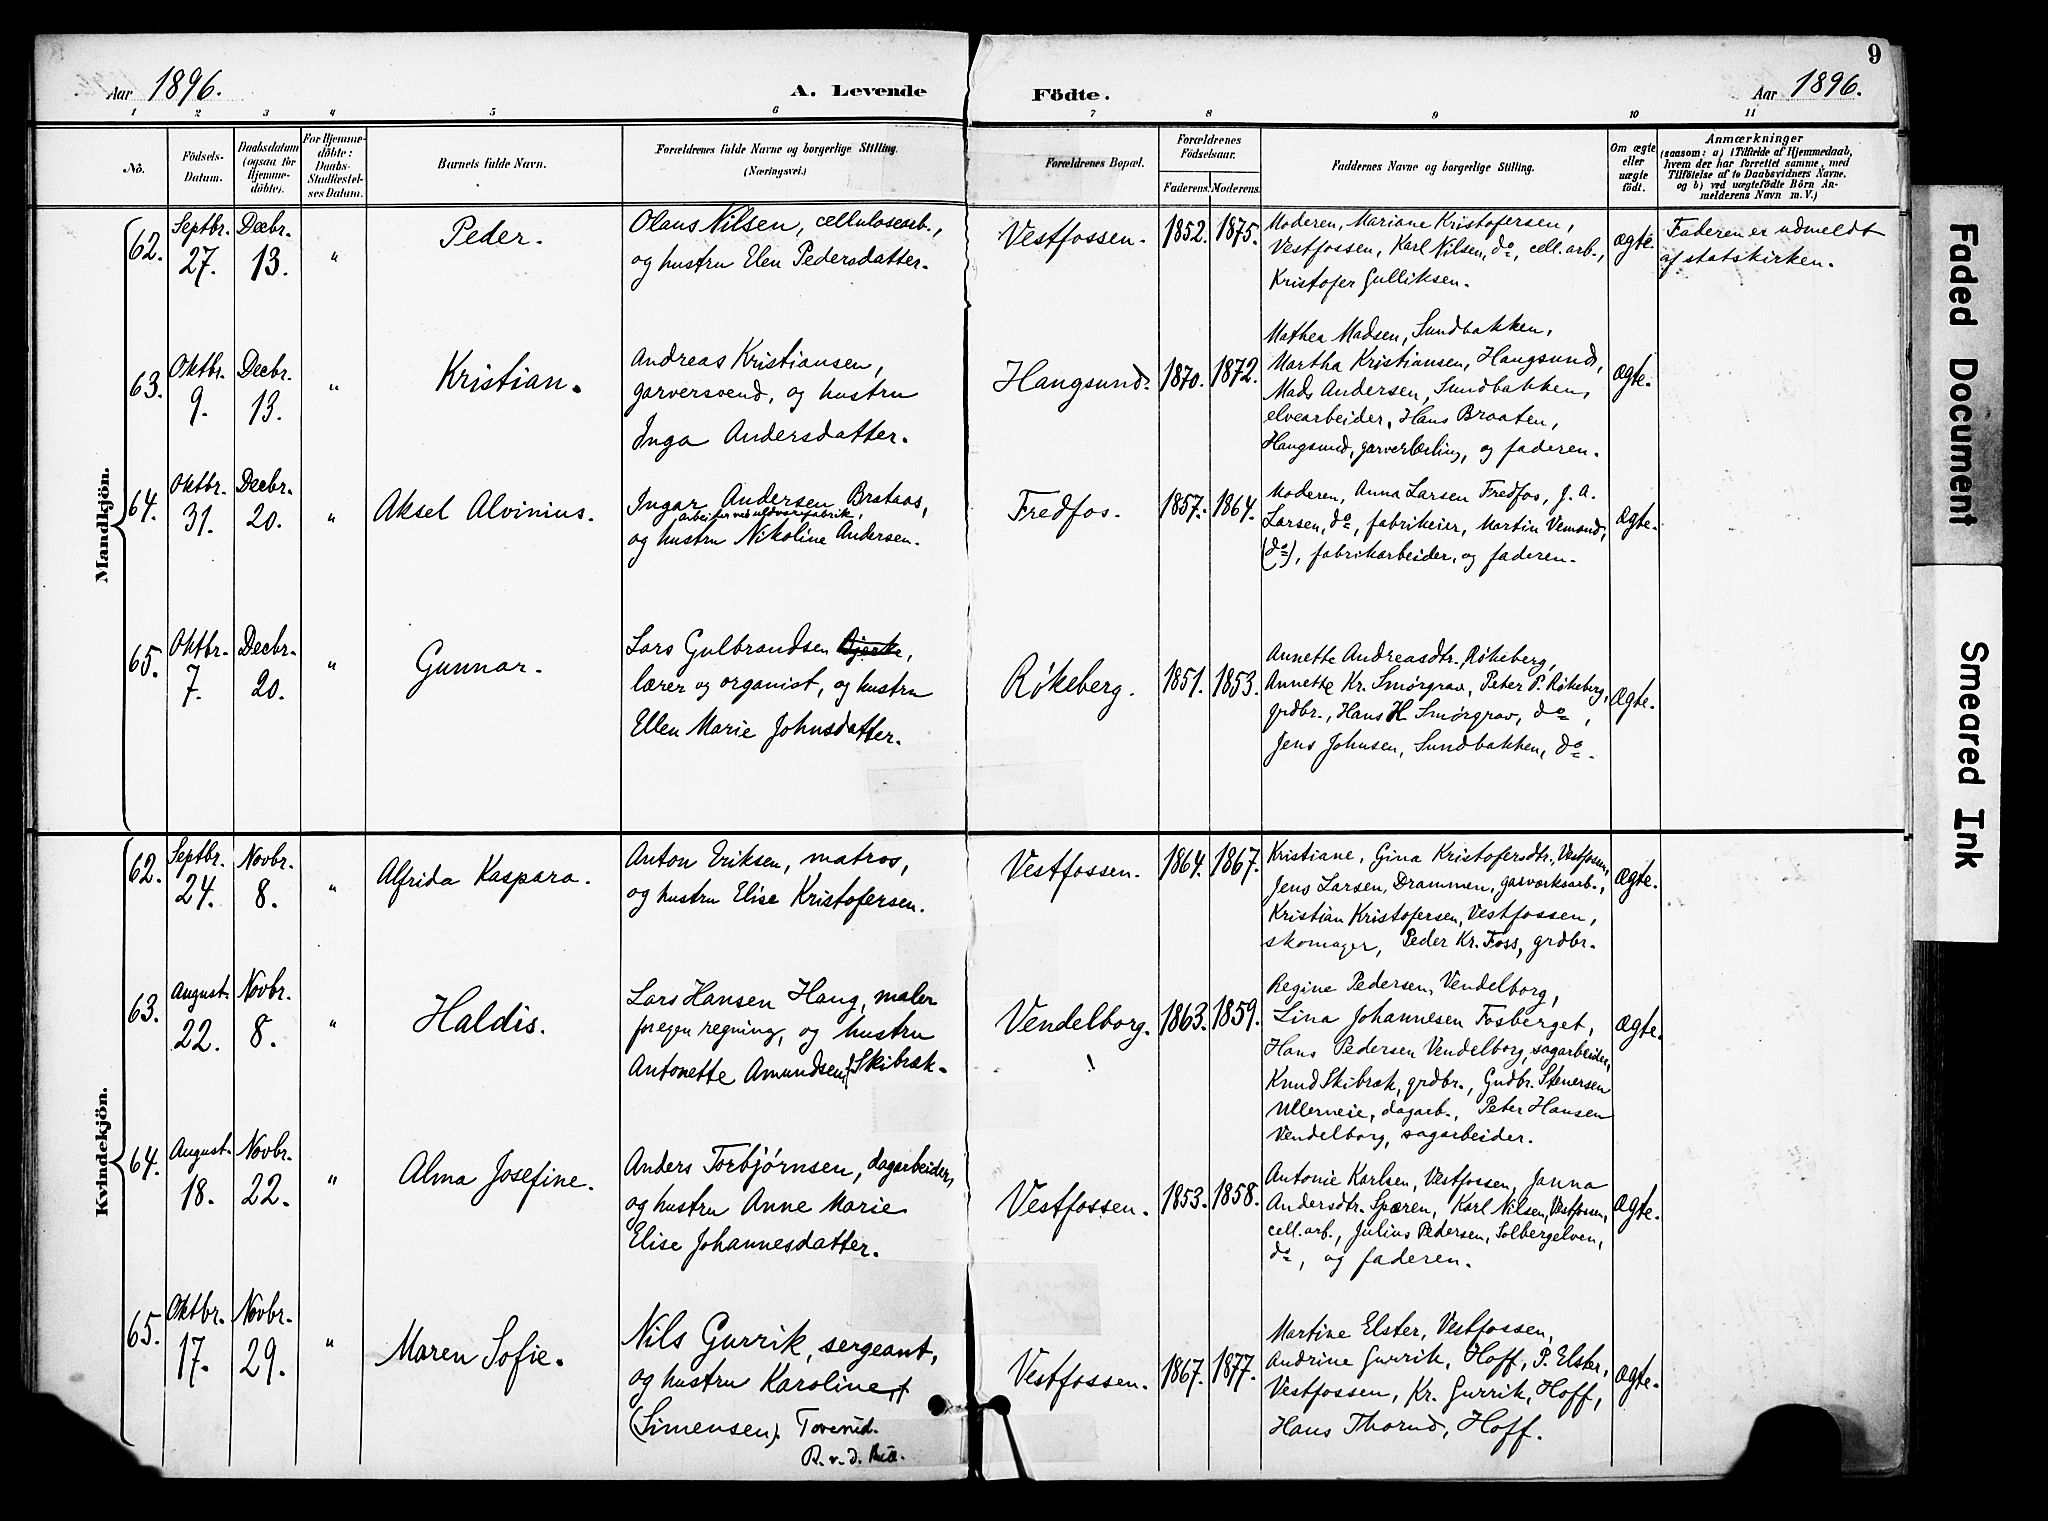 9
Aar 1896.
A. Levende Födte.
Aar 1896.
1 2 3 4 5 6 7 8 9 10 11
No.
Födsels-
Datum.
Daabsdatum
(ogsaa for
Hjemme-
döbte).
For Hjemme-
döbte:
Daabs-
Stadfæstel-
ses Datum.
Barnets fulde Navn.
Forældrenes fulde Navne og borgerlige Stilling.
(Næringsvei.)
Forældrenes Bopæl.
Forældrenes
Födselsaar.
Faderens. Moderens.
Faddernes Navne og borgerlige Stilling.
Om ægte
eller
uægte
födt.
Anmærkninger
(saasom: a) i Tilfælde af Hjemmedaab,
hvem der har forrettet samme, med
Tilföielse af to Daabsvidners Navne,
og b) ved uægtefödte Börn An-
melderens Navn m. V.)
Mandkjön.
62.
Septbr.
27.
Decbr.
13.
"
Peder.
Olaus Nilsen, cellulosearb.,
og hustru Elen Pedersdatter.
Vestfossen.
1852. 1875.
Moderen, Mariane Kristofersen,
Vestfossen, Karl Nilsen, do, cell. arb.,
Kristofer Gulliksen.
ægte.
Faderen er udmeldt
af statskirken.
63.
Oktbr.
9.
Decbr.
13.
"
Kristian.
Andreas Kristiansen,
garversvend, og hustru
Inga Andersdatter.
Haugsund.
1870. 1872.
Mathea Madsen, Sundbakken,
Martha Kristiansen, Haugsund,
Mads Andersen, Sundbakken,
elvearbeider, Hans Braaten,
Haugsund, garverlærling, og faderen.
ægte.
64.
Oktbr.
31.
Decbr.
20.
"
Aksel Alvinius.
Ingar Andersen Brataas,
arbeider ved uldvarefabrik,
og hustru Nikoline Andersen.
Fredfos.
1857. 1864.
Moderen, Anna Larsen Fredfos, J. A.
Larsen, do, fabrikeier, Martin Vemund,
(do), fabrikarbeider, og faderen.
ægte.
65.
Oktbr.
7.
Decbr.
20.
"
Gunnar.
Lars Gulbrandsen Bjerke,
lærer og organist, og hustru
Ellen Marie Johnsdatter.
Røkeberg.
1851. 1853.
Annette Andreasdtr. Røkeberg,
Annette Kr. Smørgrav, Peter P. Røkeberg,
grdbr., Hans H. Smørgrav, do,
Jens Johnsen, Sundbakken, do.
ægte.
Kvindekjön.
62.
Septbr.
24.
Novbr.
8.
"
Alfrida Kaspara.
Anton Eriksen, matros,
og hustru Elise Kristofersen.
Vestfossen.
1864. 1867.
Kristiane, Gina Kristofersdtr. Vestfossen,
Jens Larsen, Drammen, garværksarb.,
Kristian Kristofersen, Vestfossen,
skomager, Peder Kr. Foss, grdbr.
ægte.
63.
August.
22.
Novbr.
8.
"
Haldis.
Lars Hansen Haug, maler
for egen regning, og hustru
Antonette Amundsen Skibræk.
Vendelborg.
1863. 1859.
Regine Pedersen, Vendelborg,
Lina Johannesen Fosberget,
Hans Pedersen Vendelborg, sagarbeider,
Knud Skibræk, grdbr., Gudbr. Stenersen
Ullerneie, dagarb., Peter Hansen
Vendelborg, sagarbeider.
ægte.
64.
August.
18.
Novbr.
22.
"
Alma Josefine.
Anders Torbjørnsen, dagarbeider,
og hustru Anne Marie
Elise Johannesdatter.
Vestfossen.
1853. 1858.
Antonie Karlsen, Vestfossen, Janna
Andersdtr. Spæren, Karl Nilsen, Vestfossen,
cell. arb., Julius Pedersen, Solbergelven,
do, og faderen.
ægte.
65.
Oktbr.
17.
Novbr.
29.
"
Maren Sofie.
Nils Gurrik, sergeant,
og hustru Karoline
(Simensen). Tovsrud.
Vestfossen.
1867. 1877.
Martine Elster, Vestfossen,
Andrine Gurrik, Hoff, P. Elster,
Vestfossen, Kr. Gurrik, Hoff,
Hans Thorud, Hoff.
ægte.
Faded Document
Smeared Ink